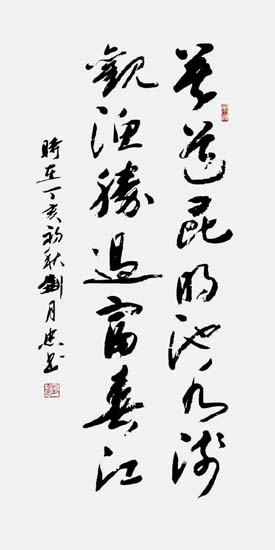 莫道昆明池水淺
觀漁勝過富春江
時在丁亥初秋劉月忠書